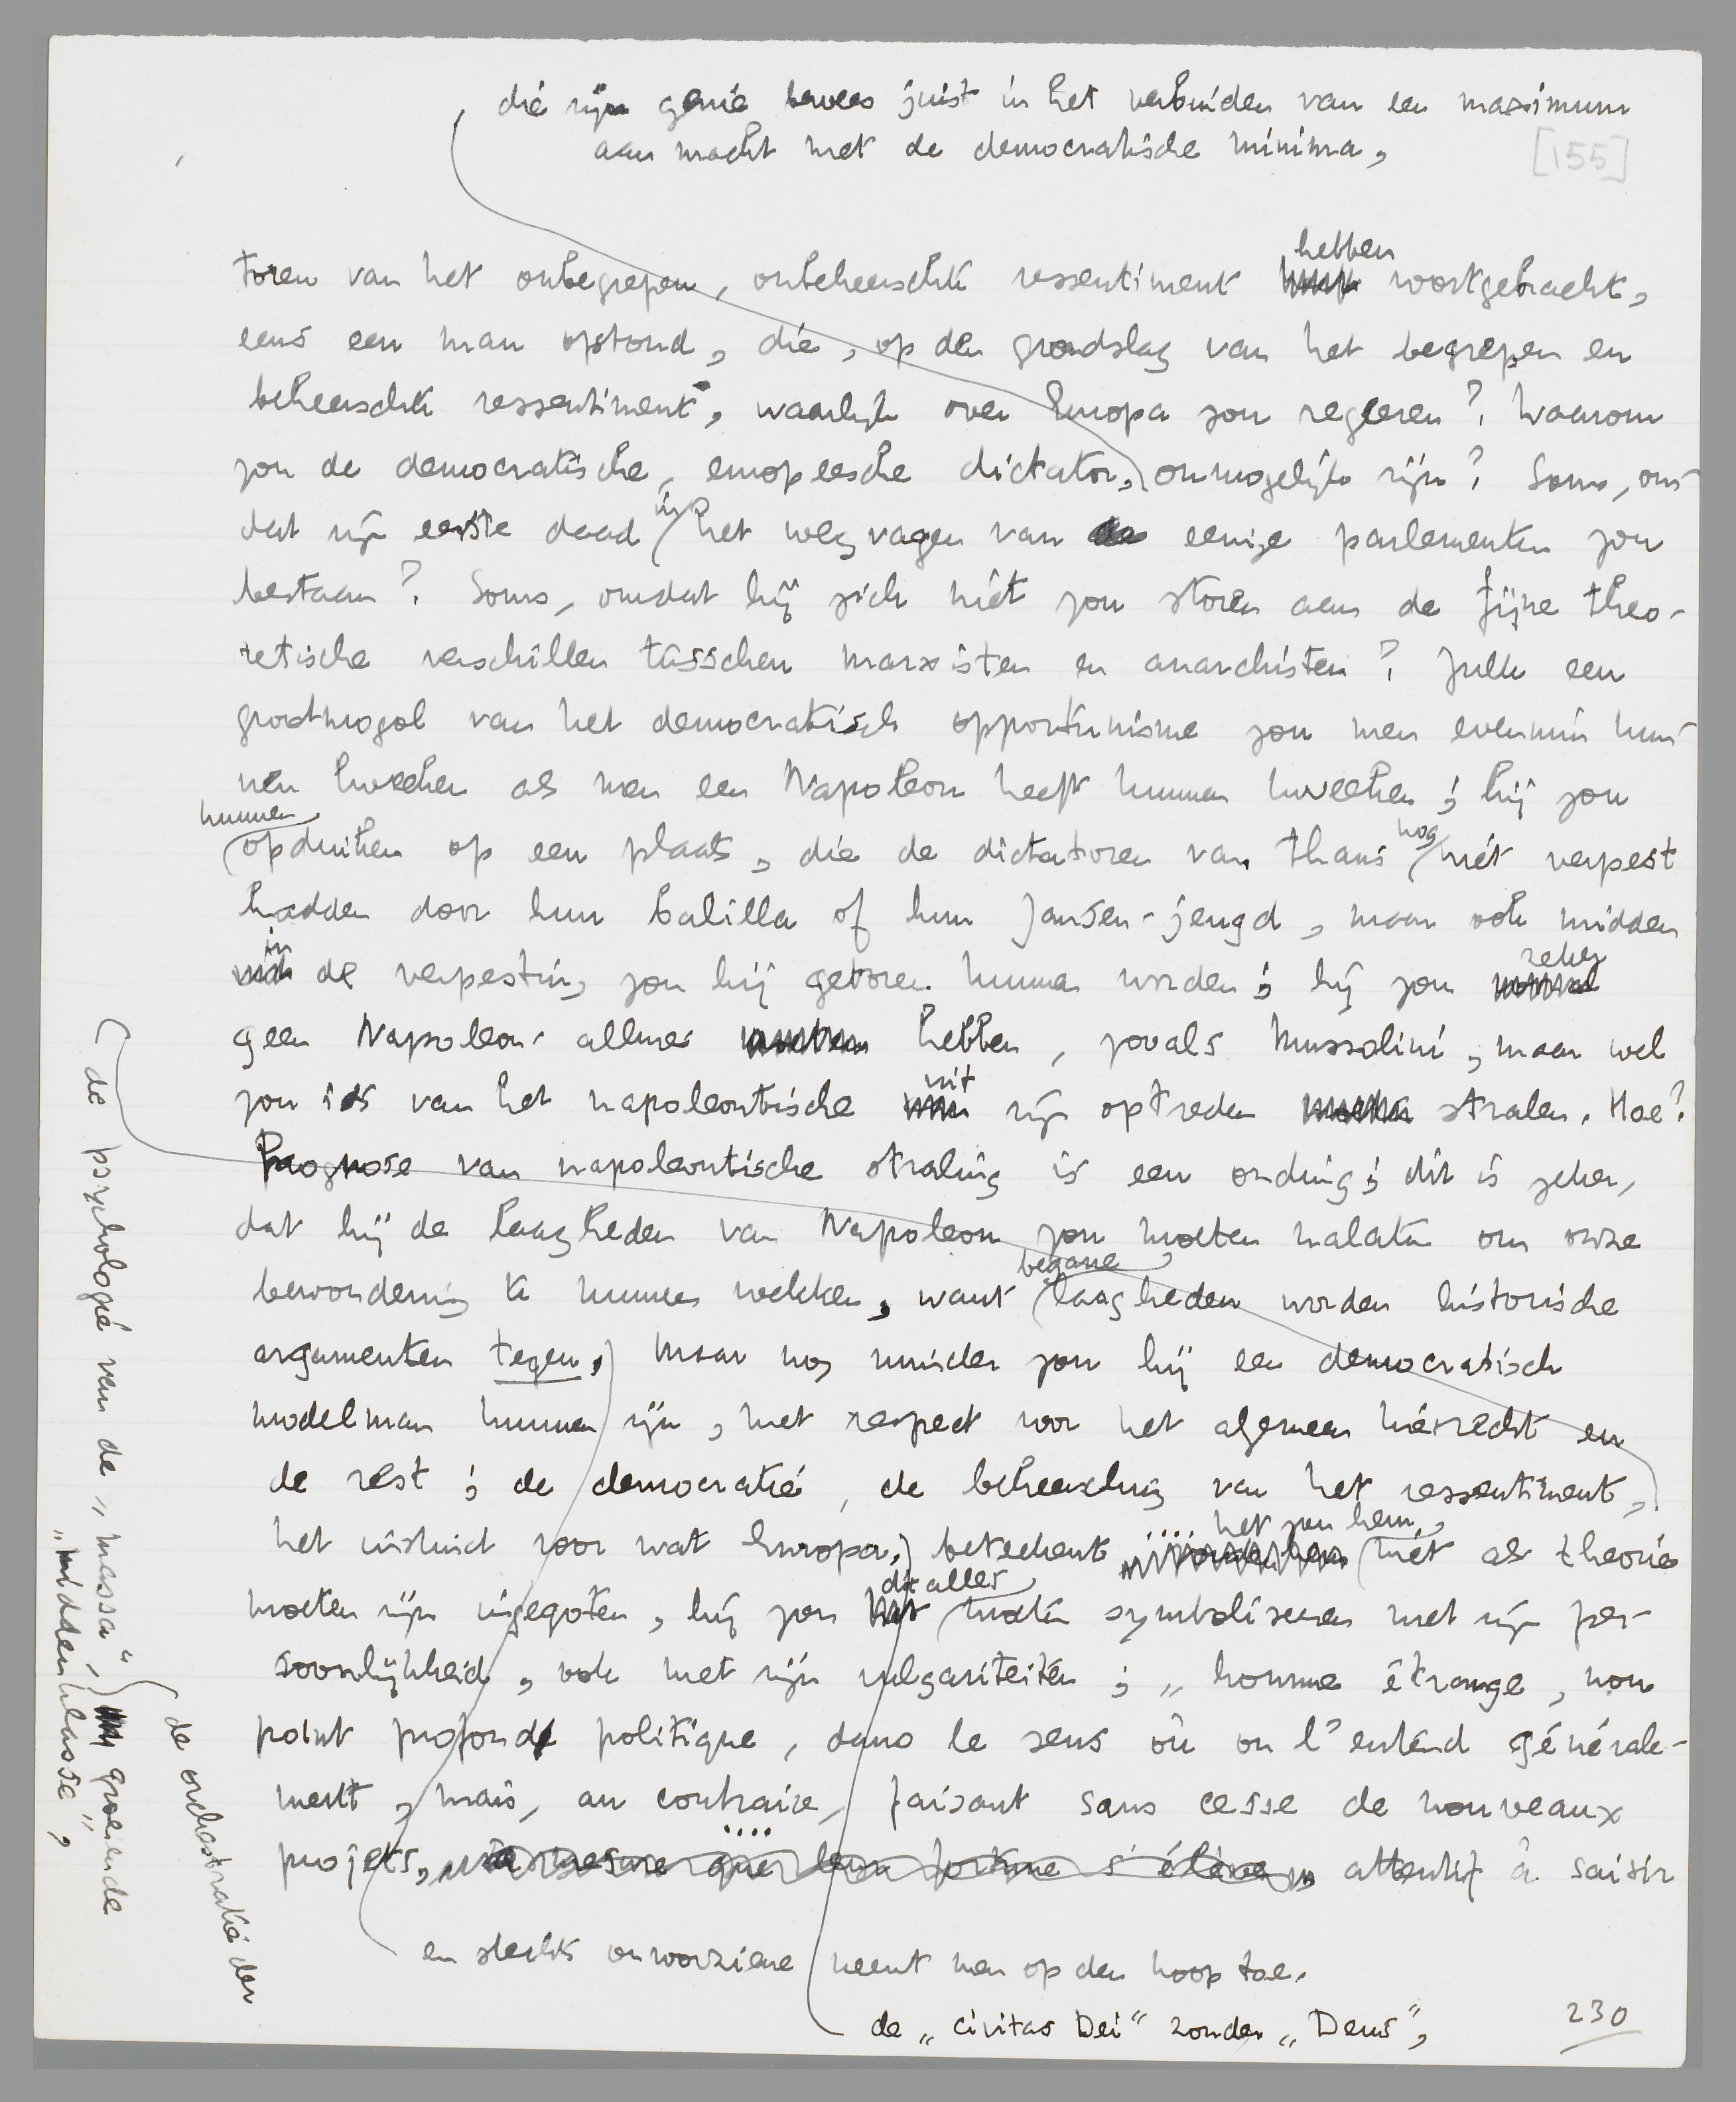 die zijn genie bewees juist in het verbinden van een maximum
aan macht met de democratische minima,
[155]
toren van het onbegrepen, onbeheerschte ressentiment hebben voortgebracht,
eens een man opstond, die, op den grondslag van het begrepen en
beheerschte ressentiment, waarlijk over Europa zou regeeren? Waarom
zou de democratische, europeesche dictator, onmogelijk zijn? Soms, om-
dat zijn eerste daad in het wegvagen van eenige parlementen zou
bestaan? Soms, omdat hij zich niet zou storen aan de fijne theo-
retische verschillen tusschen marxisten en anarchisten? Zulk een
grootmogol van het democratisch opportunisme zou men evenmin kun-
nen kweeken als men een Napoleon heeft kunnen kweeken; hij zou
kunnen opduiken op een plaats, die de dictatoren van thans nog niet verpest
hadden door hun balilla of hun Jansen-jeugd, maar ook midden
in de verpesting zou hij geboren kunnen worden; hij zou zeker
geen Napoleon-allures hebben, zooals Mussolini, maar wel
zou iets van het napoleontische uit zijn optreden stralen. Hoe?
Prognose van napoleontische straling is een onding; dit is zeker,
dat hij de laagheden van Napoleon zou moeten nalaten om onze
bewondering te kunnen wekken, want begane laagheden worden historische
argumenten tegen, maar nog minder zou hij een democratisch
modelman kunnen zijn, met respect voor het algemeen kiesrecht en
de rest; de democratie, de beheersching van het ressentiment,
het instinct voor wat Europa, beteekent het zou hem niet als theorie
moeten zijn ingegoten, hij zou dit alles moeten symboliseeren met zijn per-
soonlijkheid, ook met zijn vulgariteiten; „homme étrange, non
point profond politique, dans le sens où on l'entend générale-
ment, mais, au contraire, faisant sans cesse de nouveaux
projets, à mesure que leur fortune s'élève, attentif à saisir
en slechts onvoorziene neemt men op den koop toe.
de „civitas Dei" zonder „Deus",
230
de psychologie van de „massa",
de orchestratie der
groeiende
„middenklasse",